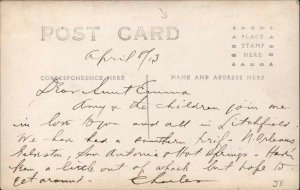 POST CARD
PLACE
STAMP
HERE
April 5/13
CORRESPONDENCE HERE NAME AND ADDRESS HERE
Dear Aunt Emma
Amy & the children join me
in love to you and all in Litchfield
We have had a Southern trip - N. Orleans
San Antonio & Hot Springs -
a out of which but hope to
get around. Charles